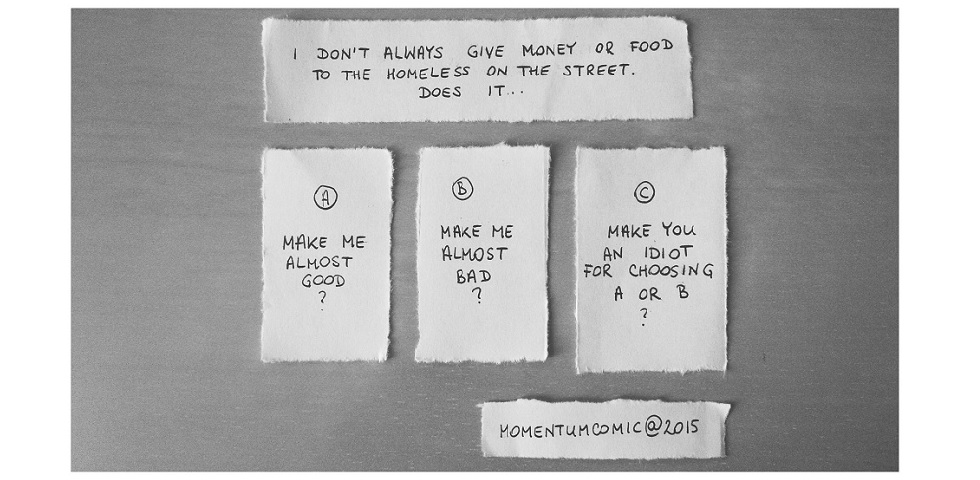 I DON'T ALWAYS GIVE MONEY OR FOOD
TO THE HOMELESS ON THE STREET.
DOES IT...
A
MAKE ME
ALMOST
GOOD
?
B
MAKE ME
ALMOST
BAD
?
C
MAKE YOU
AN IDIOT
FOR CHOOSING
A OR B
?
MOMENTUMCOMIC@2015